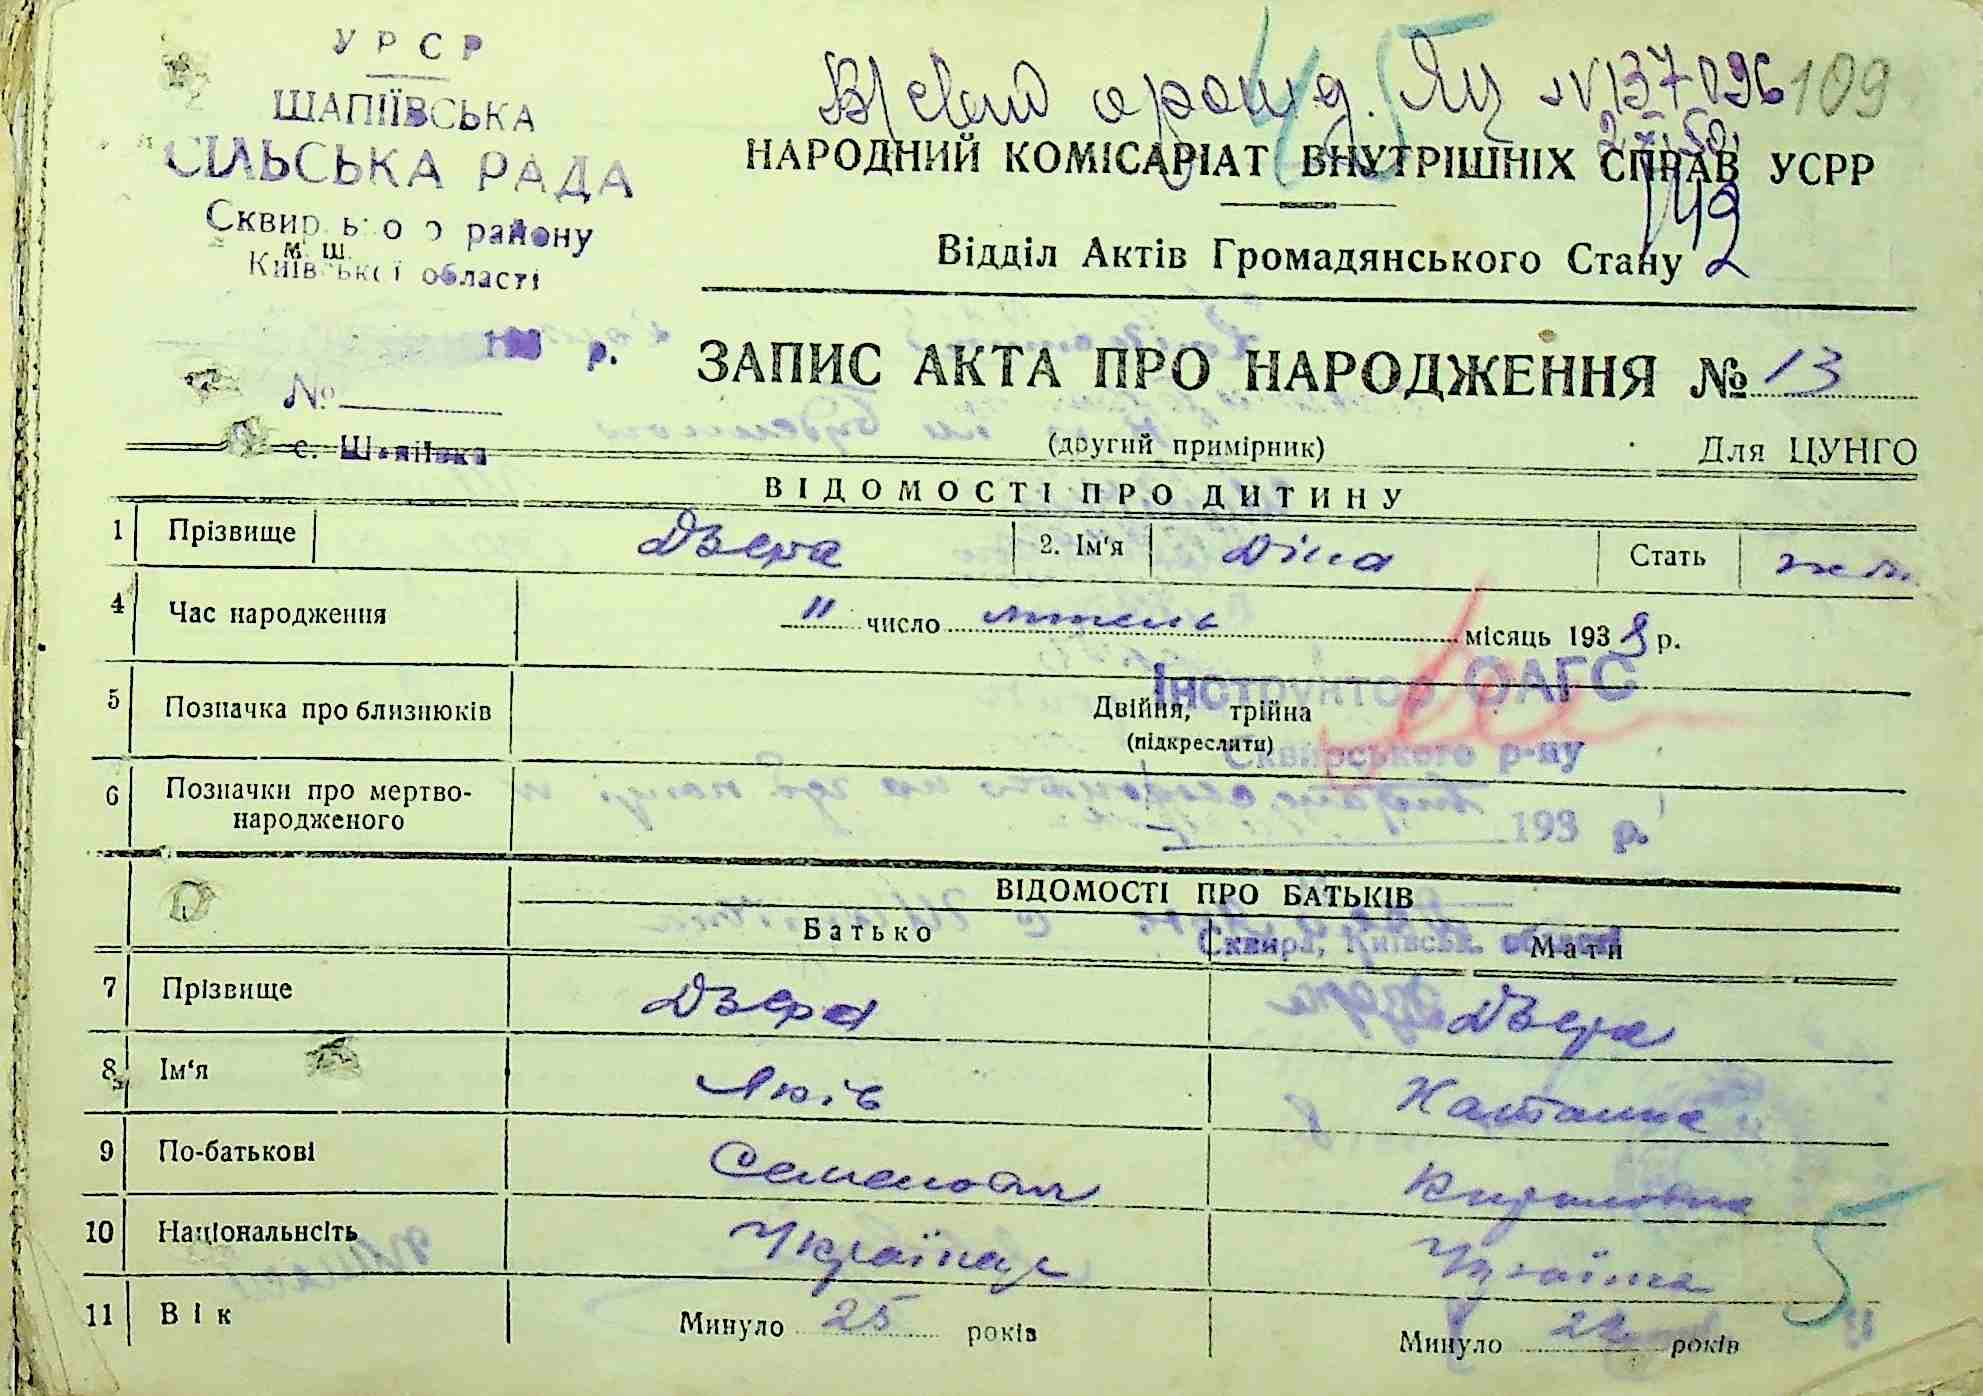 УРСР
ШАПІЇВСЬКА
СІЛЬСЬКА РАДА
Сквирського району
м. Ш.
Київської області
193 р.
№
с. Шапіївка
109
№ 137096
НАРОДНИЙ КОМІСАРІАТ ВНУТРІШНІХ СПРАВ УСРР
Відділ Актів Громадянського Стану
ЗАПИС АКТА ПРО НАРОДЖЕННЯ № 13
(другий примірник) Для ЦУНГО
ВІДОМОСТІ ПРО ДИТИНУ
1 Прізвище Дзера 2. Ім'я Діна Стать жін.
4 Час народження 11 число місяць 1939 р.
Інструктор ОАГС
5 Позначка про близнюків Двійня, трійна
(підкреслити)
Сквирського р-ну
6 Позначки про мертво-
народженого
193 р.
ВІДОМОСТІ ПРО БАТЬКІВ
Батько Мати
Сквира, Київськ. області
7 Прізвище Дзера Дзера
8 Ім'я Яків
9 По-батькові Семенович Кириловна
10 Національнсіть Українець Українка
11 Вік Минуло 25 років Минуло 22 років